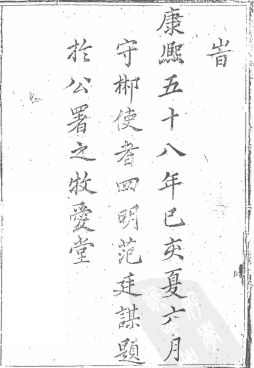 旹
康熙五十八年已亥夏六月
守郴使者四明范廷謀題
於公署之牧愛堂